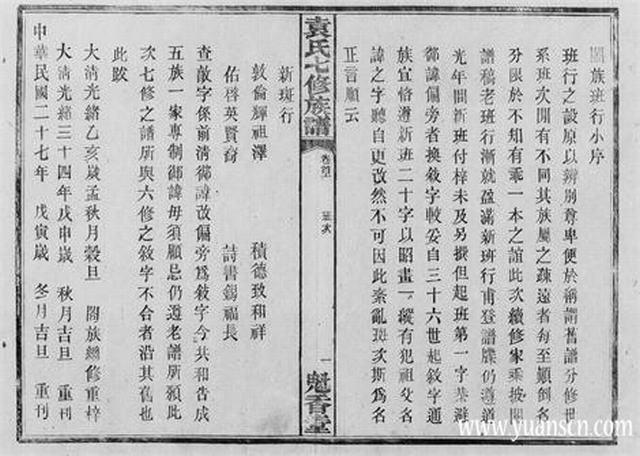 闔族班行小序
班行之設原以辨別尊卑便於稱謂舊譜分修世
系班次閒有不同其族屬之疎遠者每至顚倒名
分限於不知有乖一本之誼此次續修家乘披閱
譜稿老班行漸就盈滿新班行甫登譜牒仍遵道
光年間新班付梓未及另撰但起班第一字恭避
御諱偏旁者換敘字較妥自三十六世起敘字通
族宜恪遵新班二十字以昭畫一縱有犯祖父名
諱之字聽自更改然不可因此紊亂班次斯爲名
正言順云
袁氏七修族譜
卷首
班次
一
魁香堂
新班行
敦倫輝祖澤 積德致和祥
佑啓英賢裔 詩書錫福長
查敵字係前清御諱改偏旁爲敘字今共和告成
五族一家專制御諱毋須顧忌仍遵老譜所願此
次七修之譜所與六修之敘字不合者沿其舊也
此跋
大清光緒乙亥歲孟秋月穀旦 闔族總修重梓
大清光緒三十四年戊申歲 秋月吉旦 重刊
中華民國二十七年 戊寅歲 冬月吉旦 重刊
www.yuanscn.com